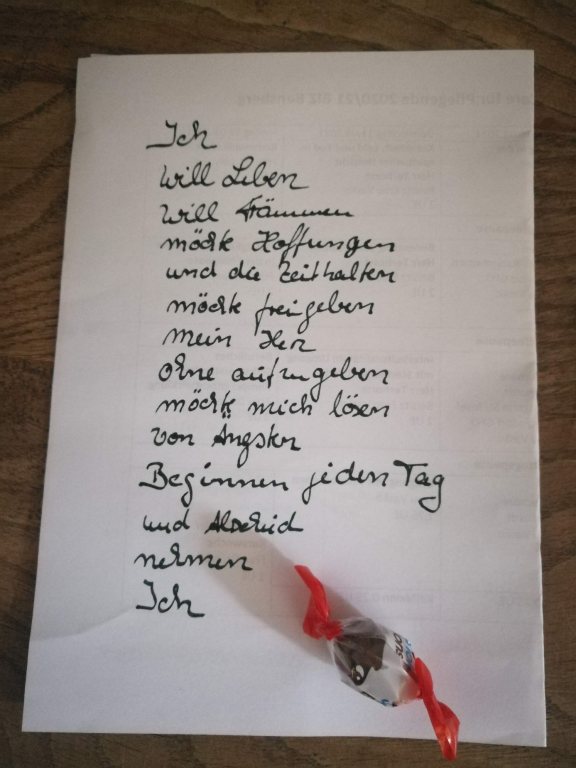 Ich
will Leben
will träumen
möchte Hoffungen
und die Zeit halten
möchte freigeben
mein Herz
ohne aufzugeben
möchte mich lösen
von Ängsten
Beginnen jeden Tag
und Abschied
nehmen
Ich